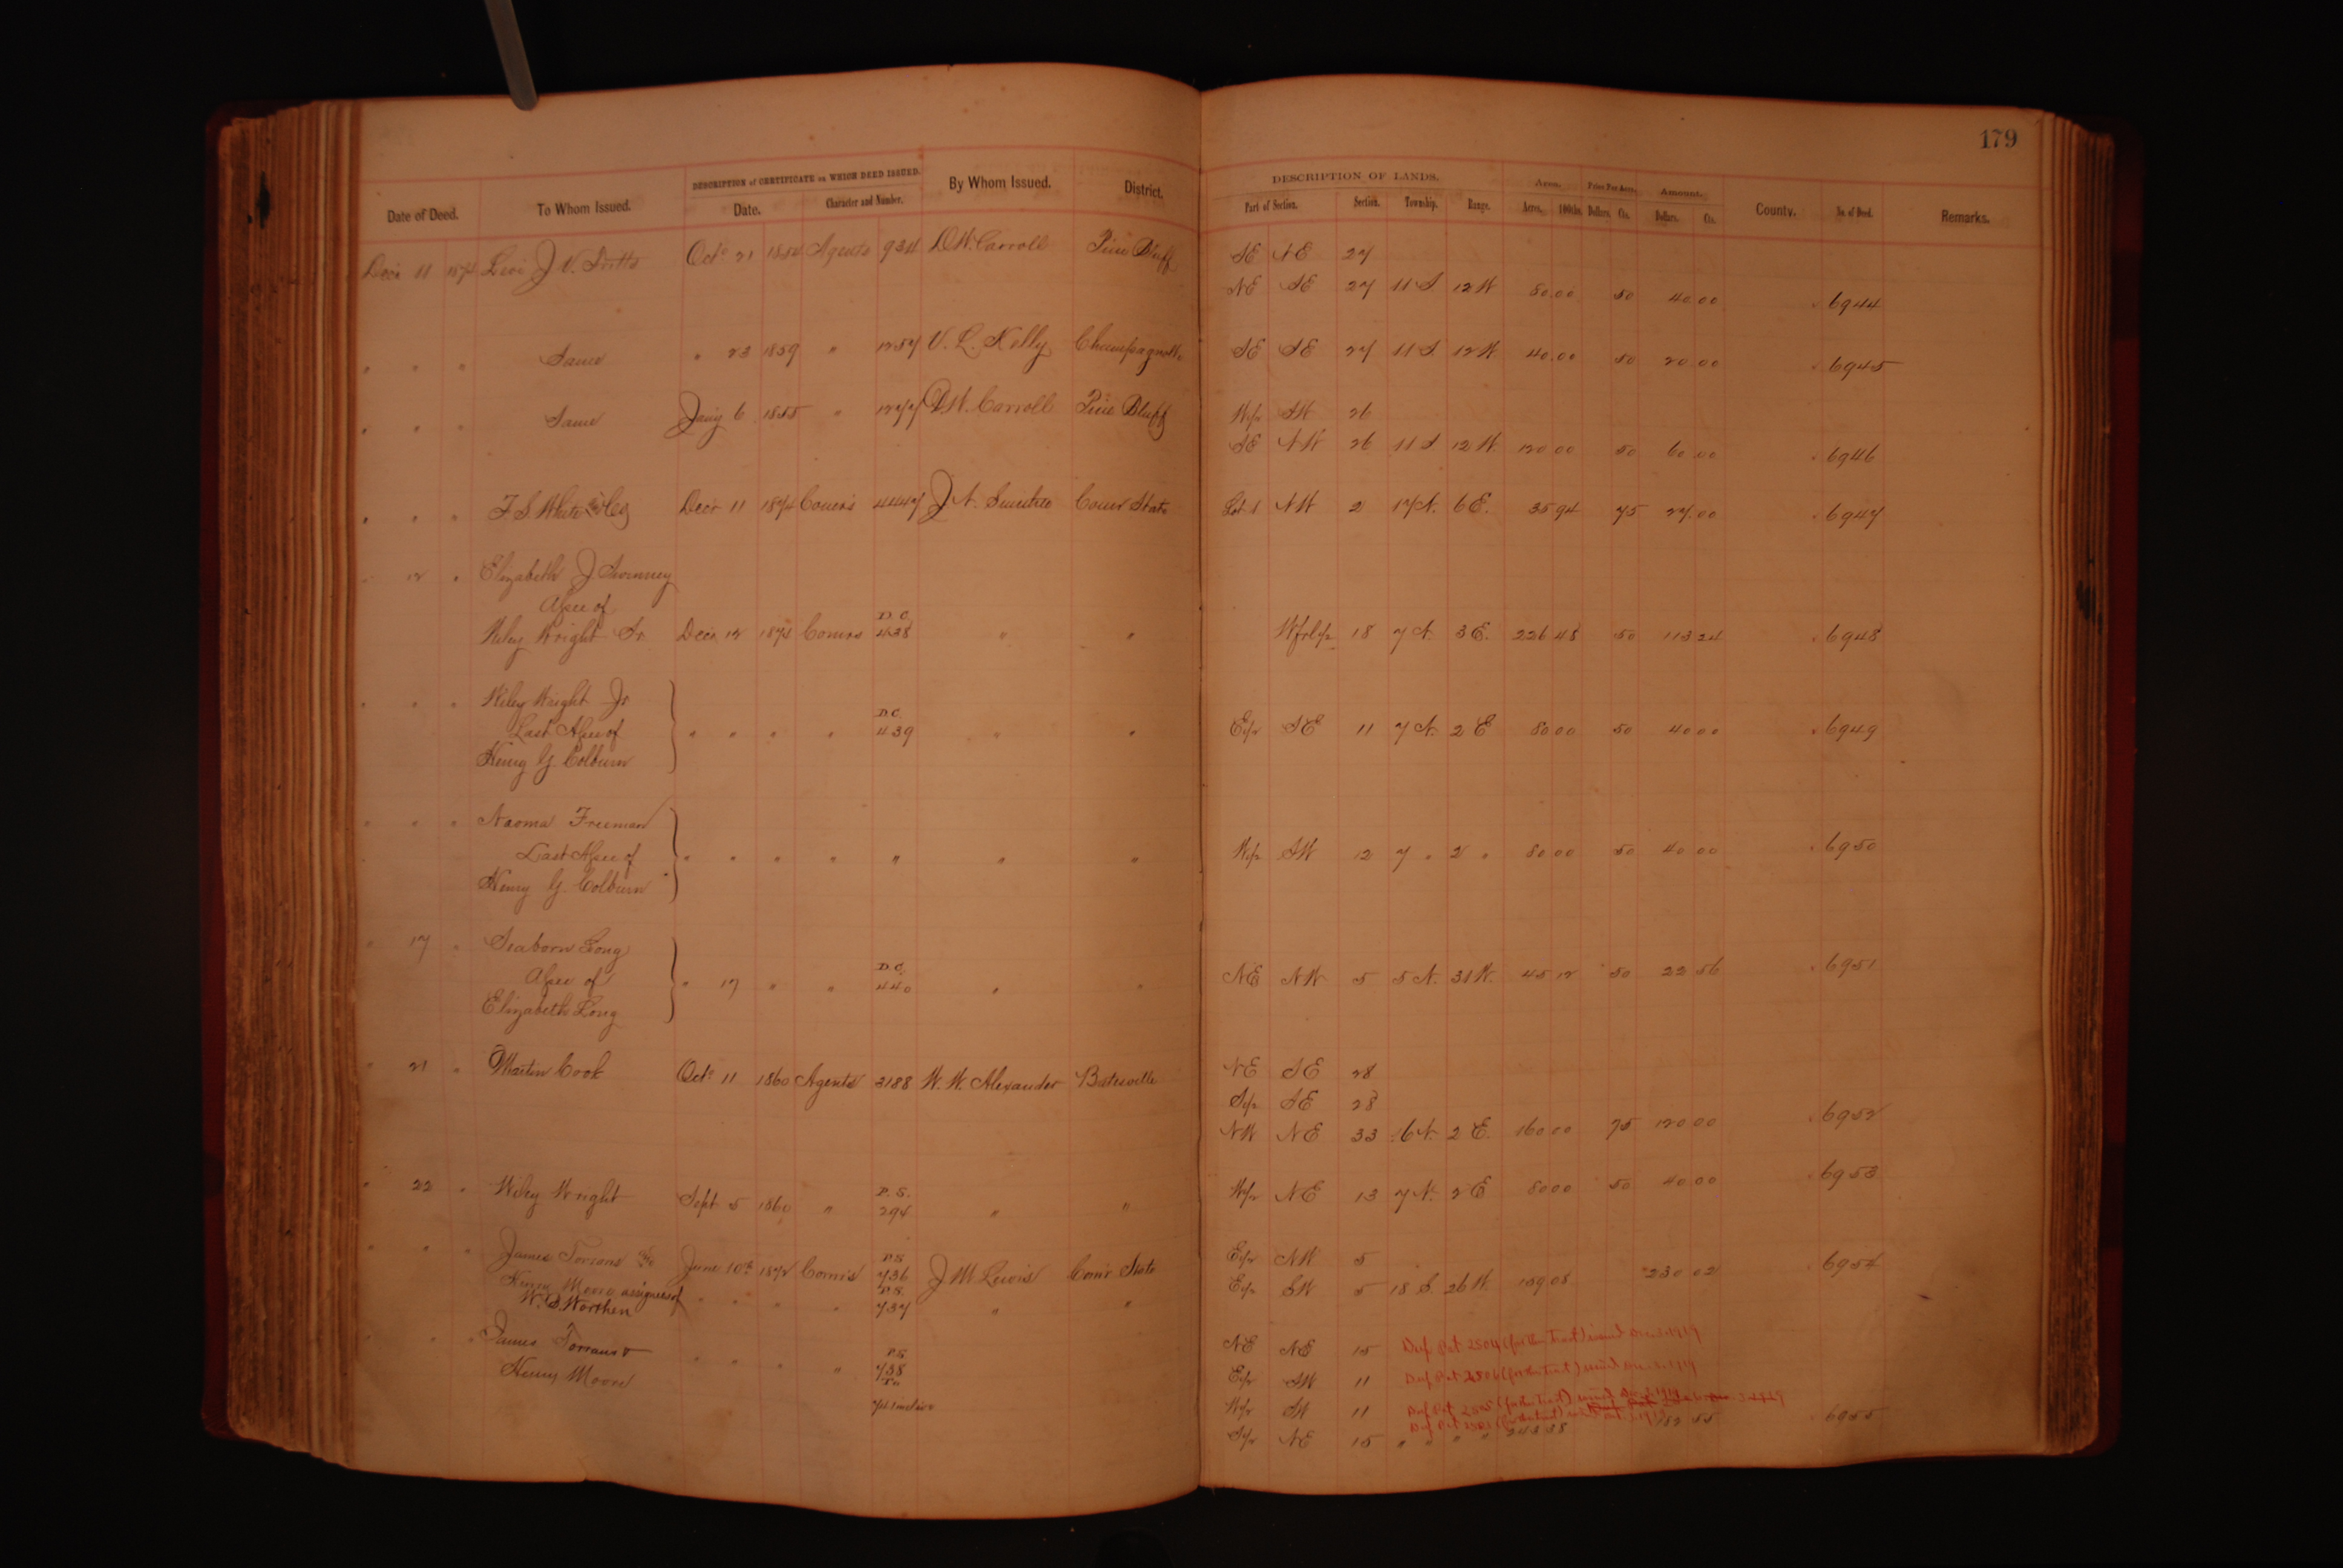 179
DESCRIPTION of CERTIFICATE on WHICH DEED ISSUED.
DESCRIPTION OF LANDS. Area. Price Per Acre. Amount.
Date of Deed. To Whom Issued. Date. Character and Number. By Whom Issued. District. Part of Section. Section. Township. Range. Acres. 100ths. Dollars. Cts. Dollars. Cts. County. No. of Deed. Remarks.
Decr 11 1874 Levi J V. Oct. 21 1854 Agents 934 D.W. Carroll Pine Bluff SE NE 27
NE SE 27 11 S. 12 W 80.00 50 40.00 6944
" " " Same " 23 1859 " 1257 V. L. Kelly Champagnolle SE SE 27 11 S. 12 W 40.00 50 20 00 6945
" " " Same Jany 6 1855 " 1277 D.W. Carroll Pine Bluff W½ SW 26
SE NW 26 11 S 12 W. 120 00 50 60 00 6946
" " " F. S. White & Co Decr 11 1874 Comr's 4447 J N. Smithee Comr State Lot 1 NW 2 17 N. 6 E. 35 94 75 27.00 6947
" 12 " Elizabeth J. Swinney
Assee of
Wiley Wright Sr Decr 12 1874 Comrs D.C. 438 " " W frl ½ 18 7 N. 3 E. 226 48 50 113 24 6948
" " " Wiley Wright Jr
Last Assee of " " " " D.C. 439 " " E½ SE 11 7 N. 2 E 80 00 50 40 00 6949
Henry G. Colburn
" " " Naoma Freeman
Last Assee of " " " " " " " W½ SW 12 7 " 2 " 80 00 50 40 00 6950
Henry G. Colburn
" 17 " Seaborn Long
Assee of " 17 " " D.C. 440 " " NE NW 5 5 N. 31 W. 45 12 50 22 56 6951
Elizabeth Long
" 21 " Martin Cook Oct. 11 1860 Agents 3188 W. W. Alexander Batesville NE SE 28
S½ SE 28
NW NE 33 16 N. 2 E. 160 00 75 120 00 6952
" 22 " Wiley Wright Sept 5 1860 " P.S. 294 " " W½ NE 13 7 N. 2 E 80 00 50 40 00 6953
" " " James Torrans and June 10th 1872 Comr's P.S. 736 J M Lewis Com'r State E½ NW 5
Henry Moore assignees of " " " " P.S. 737 " " E½ SW 5 18 S. 26 W. 159.08 230 02 6954
W. B. Worthen
" " " James Torrans & " " " " P.S. 738 NE NE 15
Henry Moore To E½ SW 11
inclusive W½ SW 11
S½ NE 15 " " " " 6955